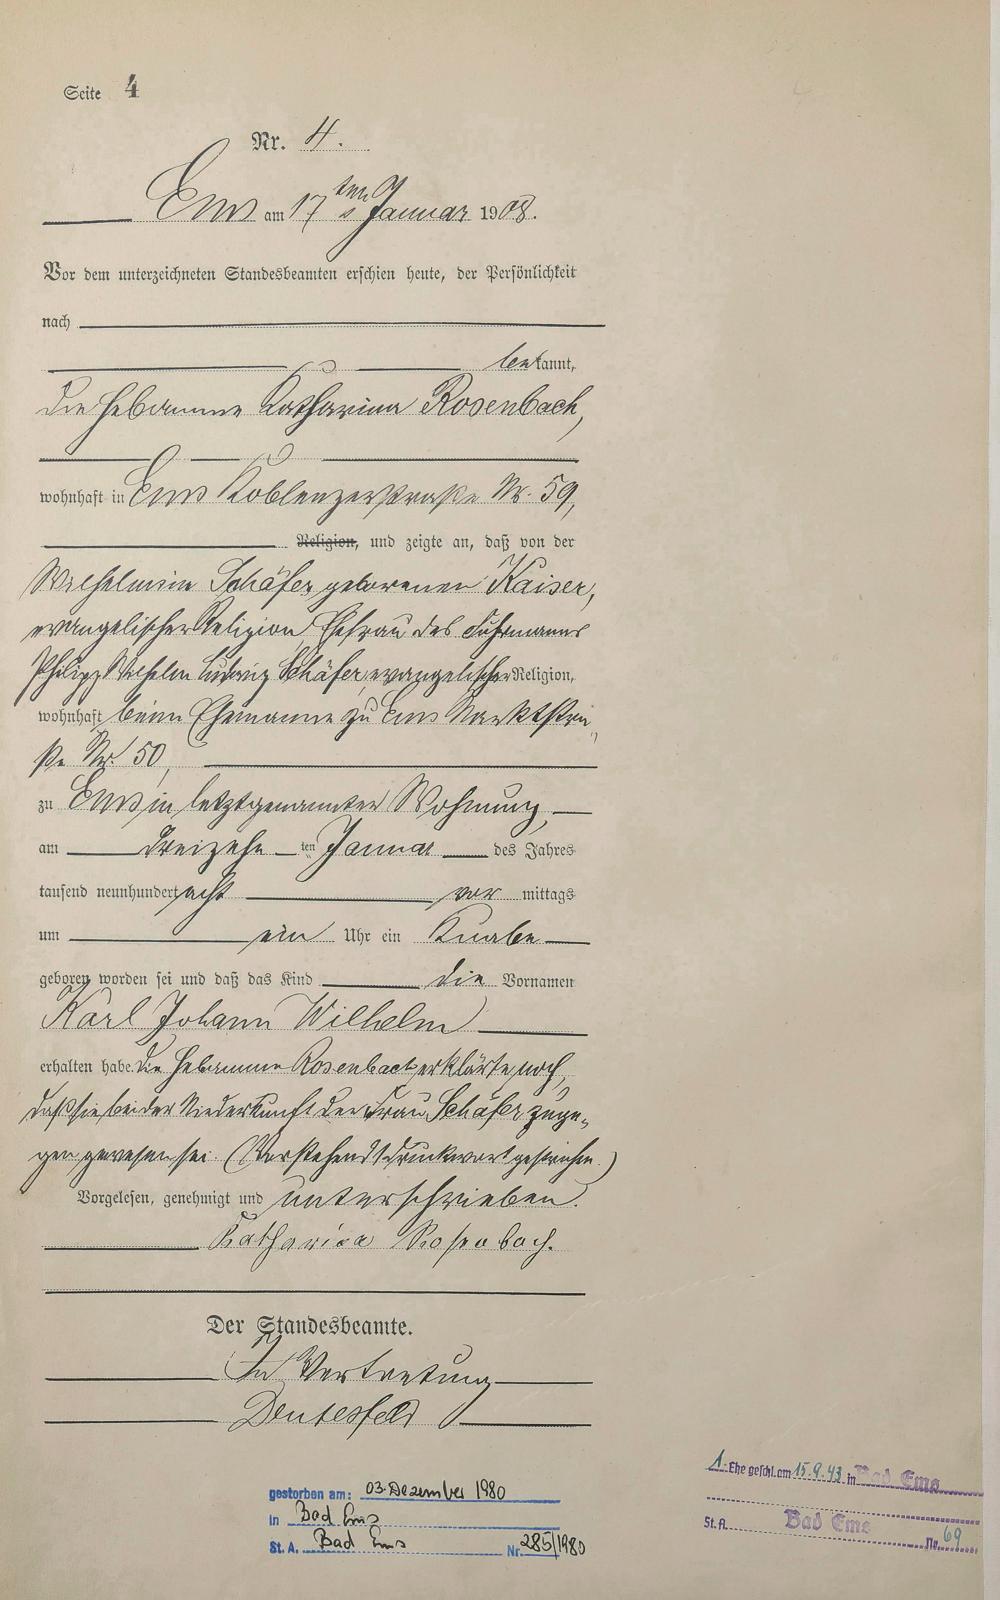 Seite 4
Nr. 4.
Ems am 17ten Januar 1908.
Vor dem unterzeichneten Standesbeamten erschien heute, der Persönlichkeit
nach
bekannt,
die Hebamme Katharina Rosenbach,
wohnhaft in Ems Koblenzerstraße Nr. 59,
Religion, und zeigte an, daß von der
Wilhelmine Schäfer geborenen Kaiser,
evangelischer Religion, Ehefrau des Fuhrmanns
Philipp Wilhelm Ludwig Schäfer, evangelischer Religion,
wohnhaft beim Ehemanne zu Ems Marktstra-
ße Nr. 50,
zu Ems in letztgenannter Wohnung,
am dreizehn ten Januar des Jahres
tausend neunhundert acht vor mittags
um ein Uhr ein Knabe
geboren worden sei und daß das Kind die Vornamen
Karl Johann Wilhelm
erhalten habe. Die Hebamme Rosenbach erklärte noch,
daß sie bei der Niederkunft der Frau Schäfer zuge-
gen gewesen sei. (Vorstehend 1 Druckwort gestrichen.)
Vorgelesen, genehmigt und unterschrieben.
Katharina Rosenbach.
Der Standesbeamte.
In Vertretung
gestorben am: 03. Dezember 1980
in Bad Ems
St. A. Bad Ems Nr. 285/1980
1. Ehe geschl. am 15.9.43 in Bad Ems
St. A. Bad Ems Nr. 69